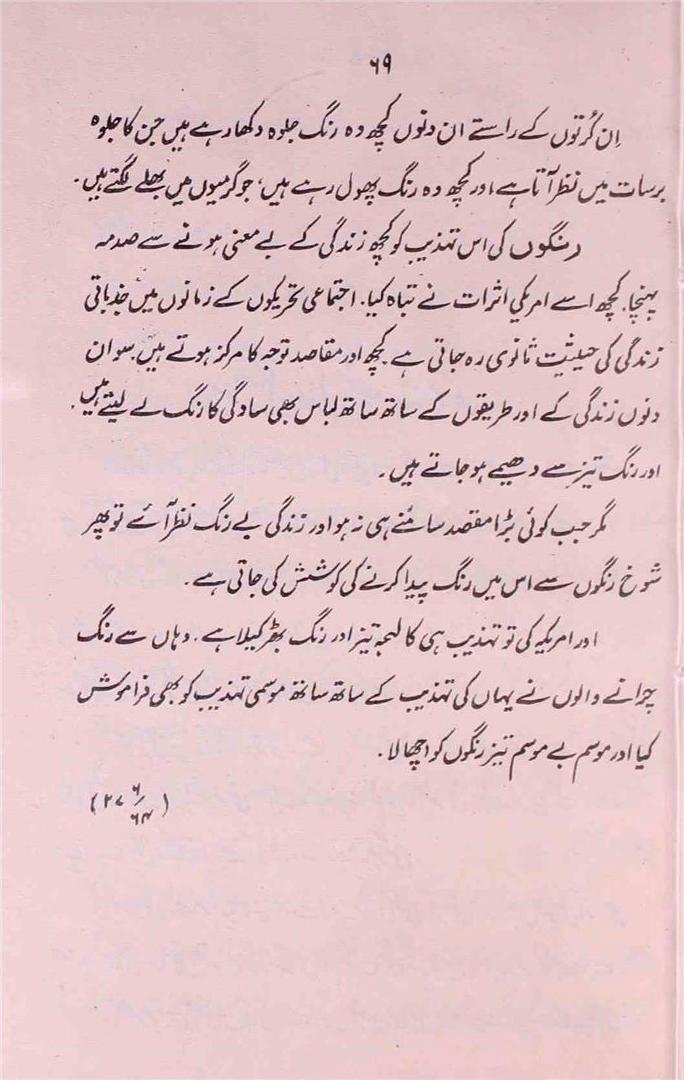 ۶۹
اِن کُرتوں کے راستے ان دنوں کچھ وہ رنگ جلوہ دکھا رہے ہیں جن کا جلوہ
برسات میں نظر آتا ہے اور کچھ وہ رنگ پھول رہے ہیں، جو گرمیوں میں بھلے لگتے ہیں۔
رنگوں کی اس تہذیب کو کچھ زندگی کے بے معنی ہونے سے صدمہ
پہنچا۔ کچھ اسے امریکی اثرات نے تباہ کیا۔ اجتماعی تحریکوں کے زمانوں میں جذباتی
زندگی کی حیثیت ثانوی رہ جاتی ہے۔ کچھ اور مقاصد توجہ کا مرکز ہوتے ہیں۔ سو ان
دنوں زندگی کے اور طریقوں کے ساتھ ساتھ لباس بھی سادگی کا رنگ لے لیتے ہیں۔
اور رنگ تیز سے دھیمے ہو جاتے ہیں۔
مگر جب کوئی بڑا مقصد سامنے ہی نہ ہو اور زندگی بے رنگ نظر آئے تو پھر
شوخ رنگوں سے اس میں رنگ پیدا کرنے کی کوشش کی جاتی ہے۔
اور امریکہ کی تو تہذیب ہی کا لہجہ تیز اور رنگ بھڑکیلا ہے۔ وہاں سے رنگ
چرانے والوں نے یہاں کی تہذیب کے ساتھ ساتھ موسمی تہذیب کو بھی فراموش
کیا اور موسم بے موسم تیز رنگوں کو اچھالا۔